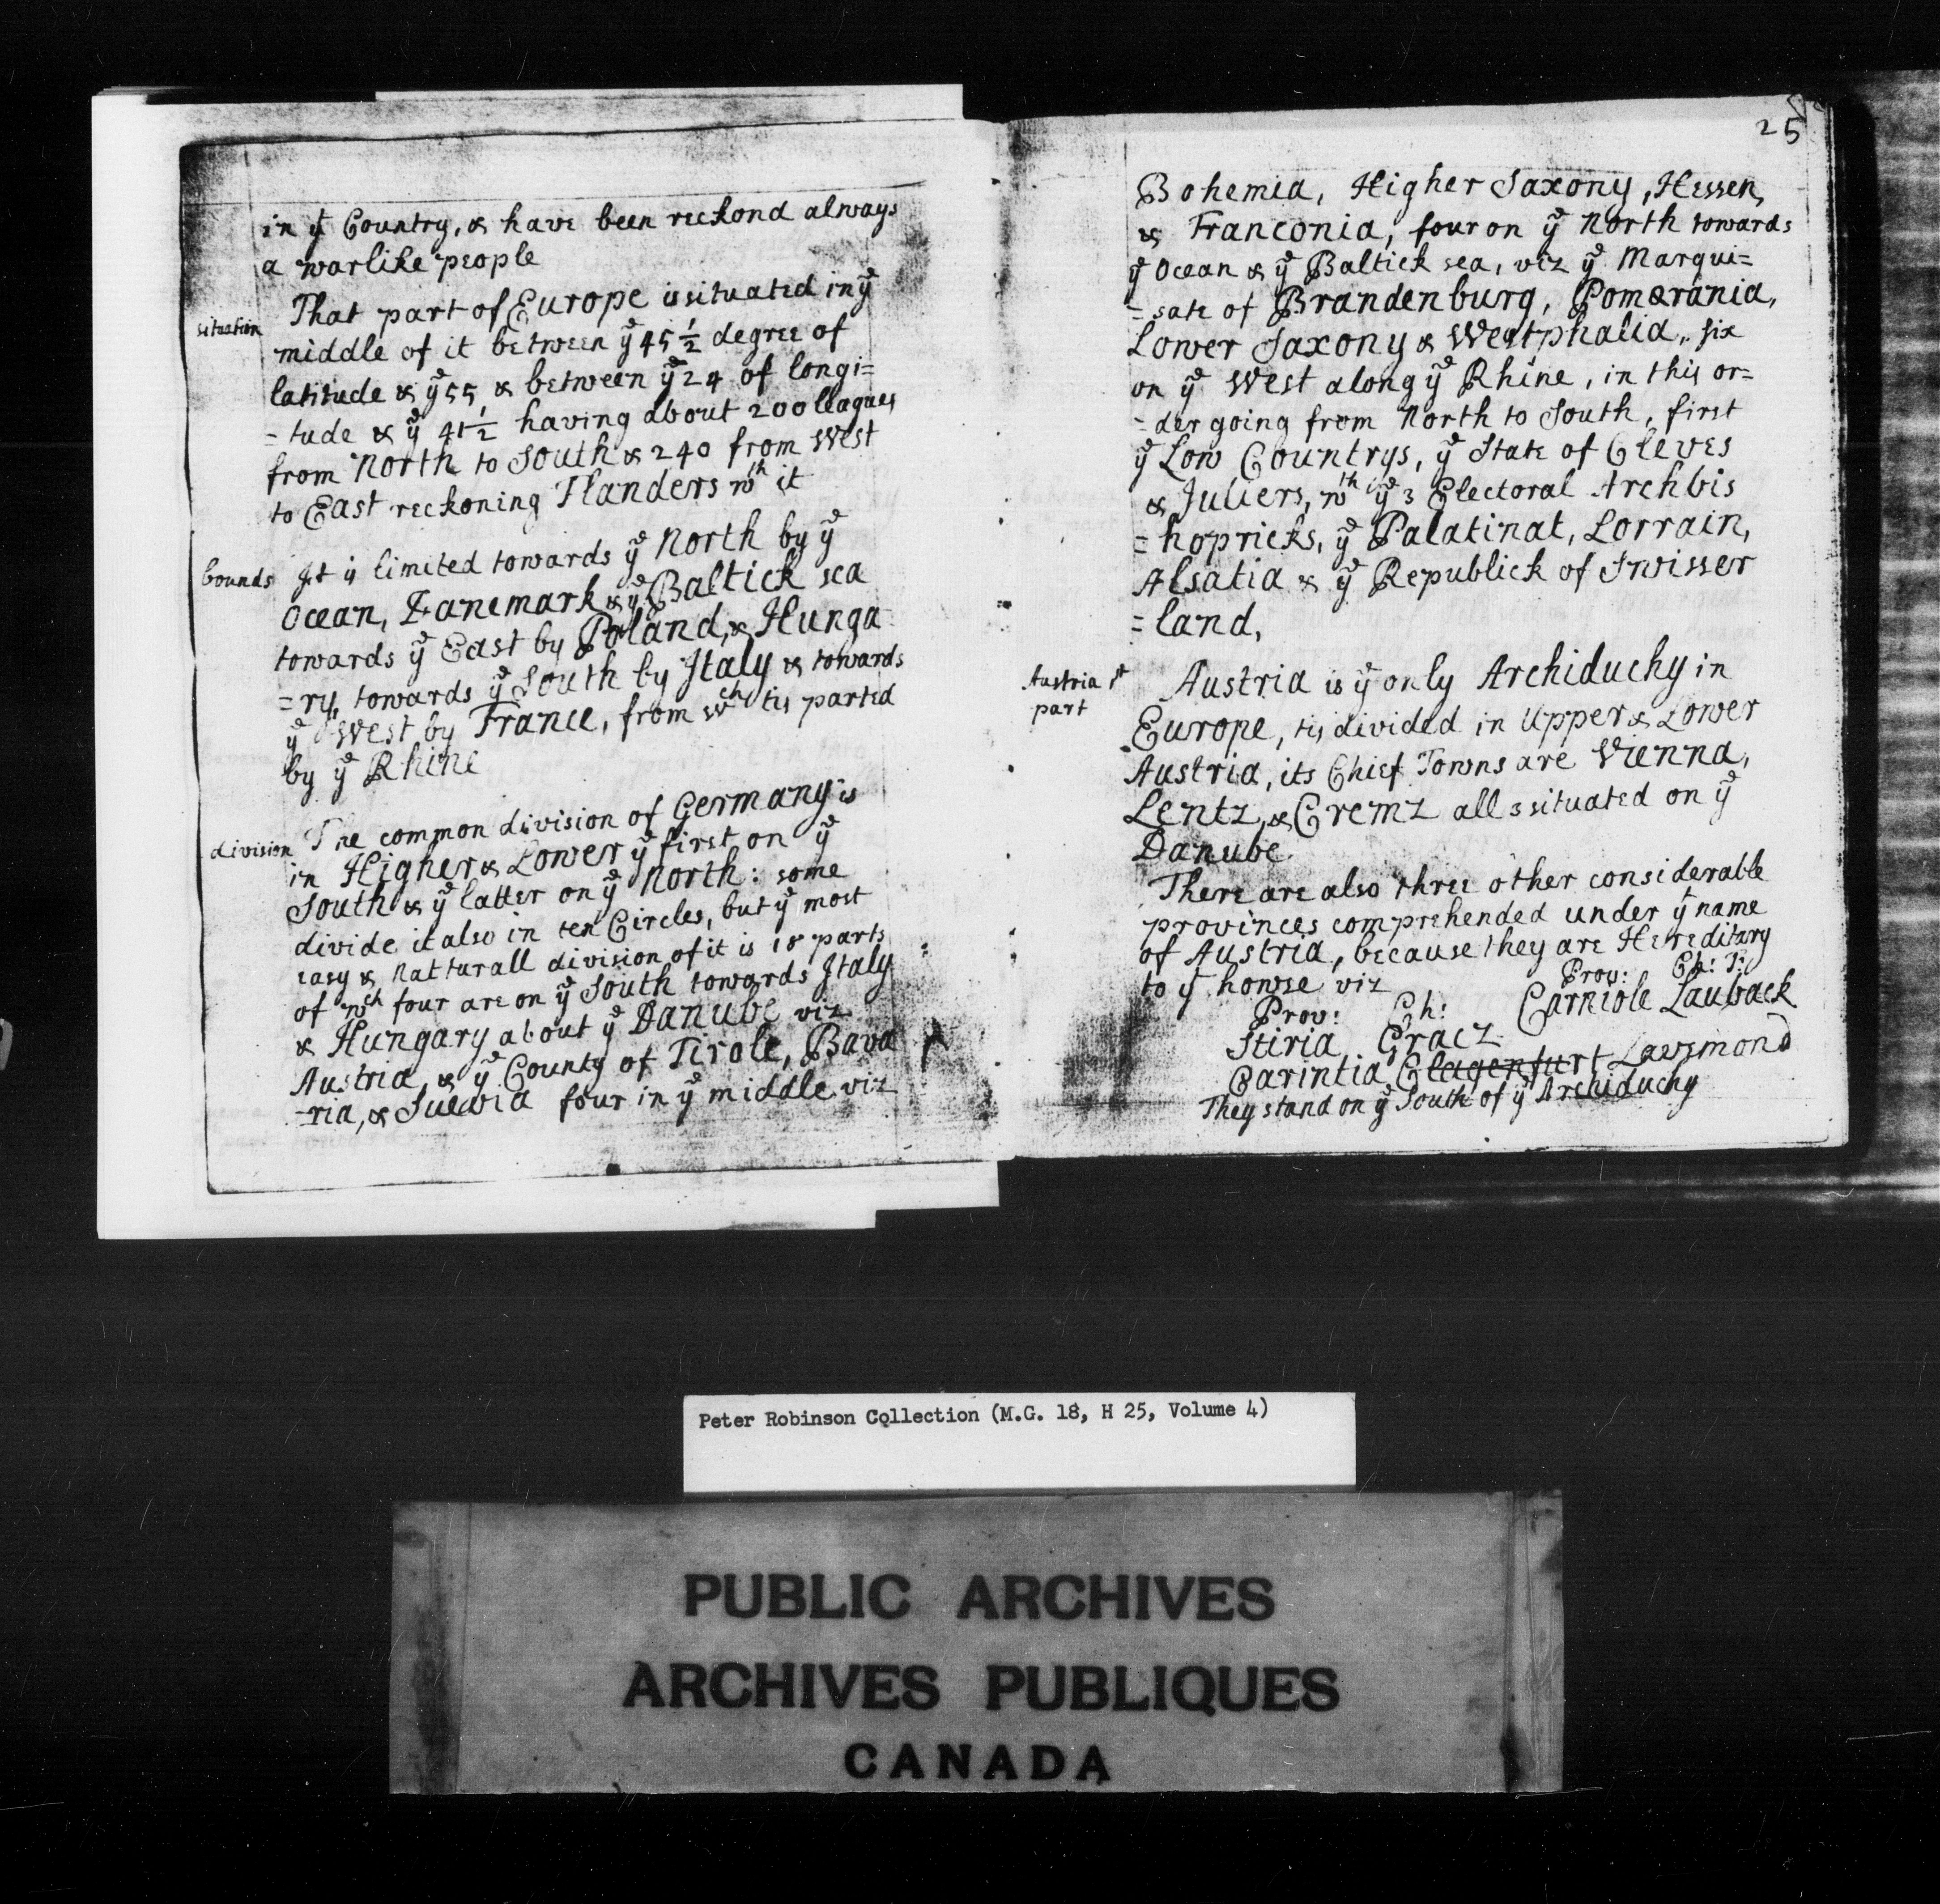 in yt Country, & have been reckond always
a warlike people
situation
That part of Europe is situated in ye
middle of it between ye 45 1/2 degree of
latitude & ye 55, & between ye 24 of longi=
=tude & ye 41 1/2 having about 200 leagues
from North to South & 240 from West
to East reckoning Flanders wth it
bounds
It is limited towards ye North by ye
Ocean, Danemark & ye Baltick sea
towards ye East by Poland, & Hunga
=ry, towards ye South by Italy & towards
ye West by France, from wch tis parted
by ye Rhine
division
The common division of Germany is
in Higher & Lower ye first on ye
South & ye latter on ye North: some
divide it also in ten Circles, but ye most
easy & natturall division of it is 18 parts
of wch four are on ye South towards Italy
& Hungary about ye Danube viz
Austria, & ye County of Tirole, Bava
=ria, & Suevia four in ye middle viz
25
Bohemia, Higher Saxony, Hessen,
& Franconia, four on ye North towards
ye Ocean & ye Baltick sea, viz ye Marqui=
=sate of Brandenburg, Pomerania,
Lower Saxony & Westphalia, six
on ye West along ye Rhine, in this or=
=der going from North to South, first
ye Low Countrys, ye State of Cleves
& Juliers, wth ye 3 Electoral Archbis
=hopricks, ye Palatinat, Lorrain,
Alsatia & ye Republick of Swisser
=land,
Austria 1st
part
Austria is ye only Archiduchy in
Europe, tis divided in Upper & Lower
Austria, its Chief Towns are Vienna,
Lentz, & Cremz all 3 situated on ye
Danube
There are also three other considerable
provinces comprehended under yt name
of Austria, because they are Hereditary
to yt howse viz
Prov: Ch: Prov: Ch: T:
Stiria Gracz Carniole Lauback
Carintia Clagenfurt Lavzmond
They stand on ye South of ye Archiduchy
Peter Robinson Collection (M.G. 18, H 25, Volume 4)
PUBLIC ARCHIVES
ARCHIVES PUBLIQUES
CANADA